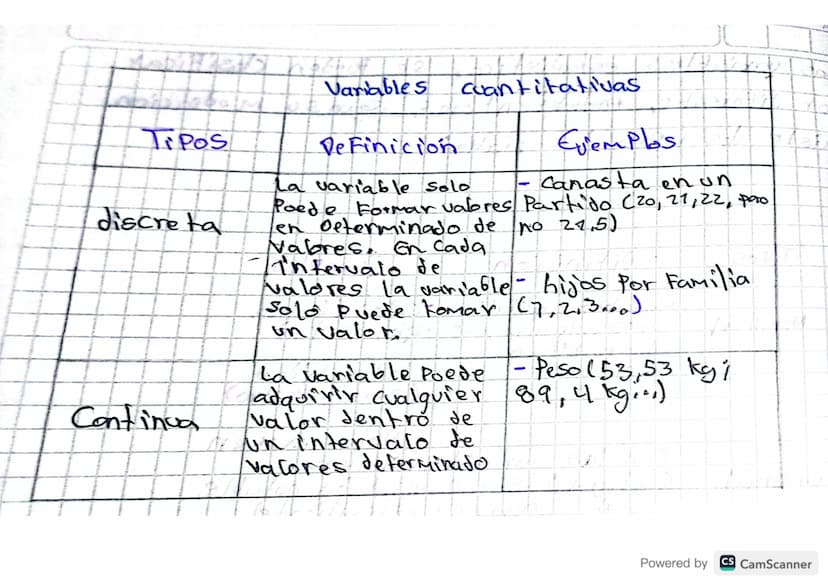 Variables cuantitativas
Tipos
Definicion
Ejemplos
discreta
La variable solo
Poede Formar valores
en Determinado de
Valores. En Cada
intervalo de
valores la variable
Solo puede tomar
un valor.
- Canasta en un
Partido (20, 21, 22, pero
no 21,5)
- hijos por Familia
(1, 2, 3...)
Continua
La variable Poede
adquirir Cualquier
valor dentro de
un intervalo de
Valores determinado
- Peso (53,53 kg;
89,4 kg...)
Powered by CS CamScanner